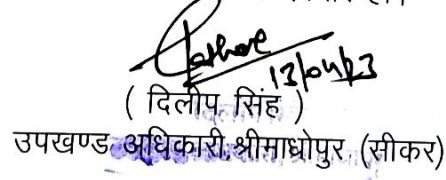 13/04/23
( दिलीप सिंह )
उपखण्ड अधिकारी, श्रीमाधोपुर (सीकर)